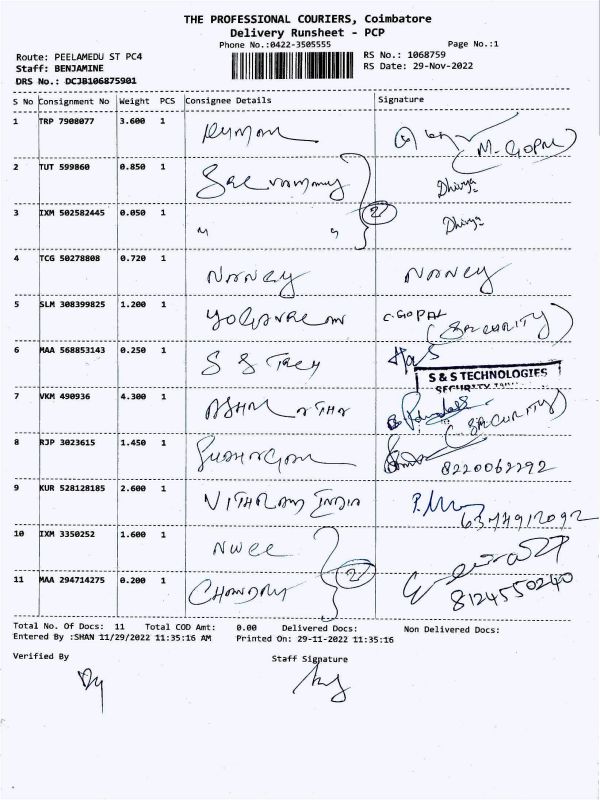 THE PROFESSIONAL COURIERS, Coimbatore
Delivery Runsheet - PCP
Phone No.:0422-3505555
Page No.:1
Route: PEELAMEDU ST PC4
Staff: BENJAMINE
DRS No.: DCJB106875901
RS No.: 1068759
RS Date: 29-Nov-2022
S No Consignment No Weight PCS Consignee Details Signature
1 TRP 7908077 3.600 1 M. GOPAL
2 TUT 599860 0.850 1 Dhivya
3 IXM 502582445 0.050 1 " " 2 Dhivya
4 TCG 50278808 0.720 1 NANCY NANCY
5 SLM 308399825 1.200 1 C.GOPAL (SECURITY)
6 MAA 568853143 0.250 1 S & S TECH
S & S TECHNOLOGIES
SECURITY
7 VKM 490936 4.300 1 (SECURITY)
8 RJP 3023615 1.450 1 8220062292
9 KUR 528128185 2.600 1 INDIA
6374912092
10 IXM 3350252 1.600 1
11 MAA 294714275 0.200 1 2 8124550240
Total No. Of Docs: 11 Total COD Amt: 0.00 Delivered Docs: Non Delivered Docs:
Entered By :SHAN 11/29/2022 11:35:16 AM Printed On: 29-11-2022 11:35:16
Verified By Staff Signature